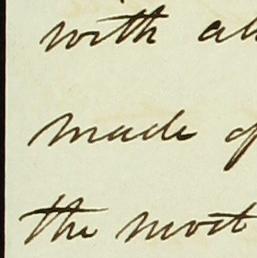 with
made of
the most